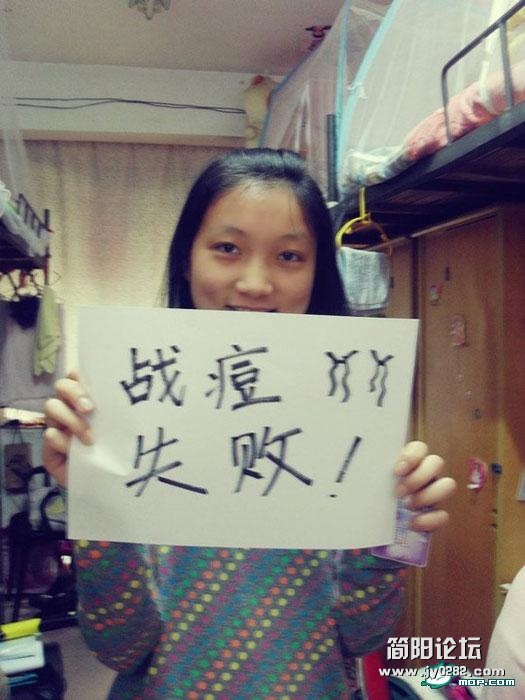 战痘 YY
失败!
简阳论坛
www.jy0282.com
MOP.COM